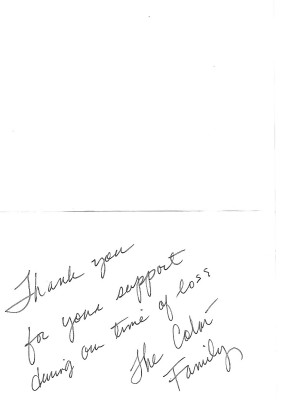 Thank you
for your support
during our time of loss
The
Family